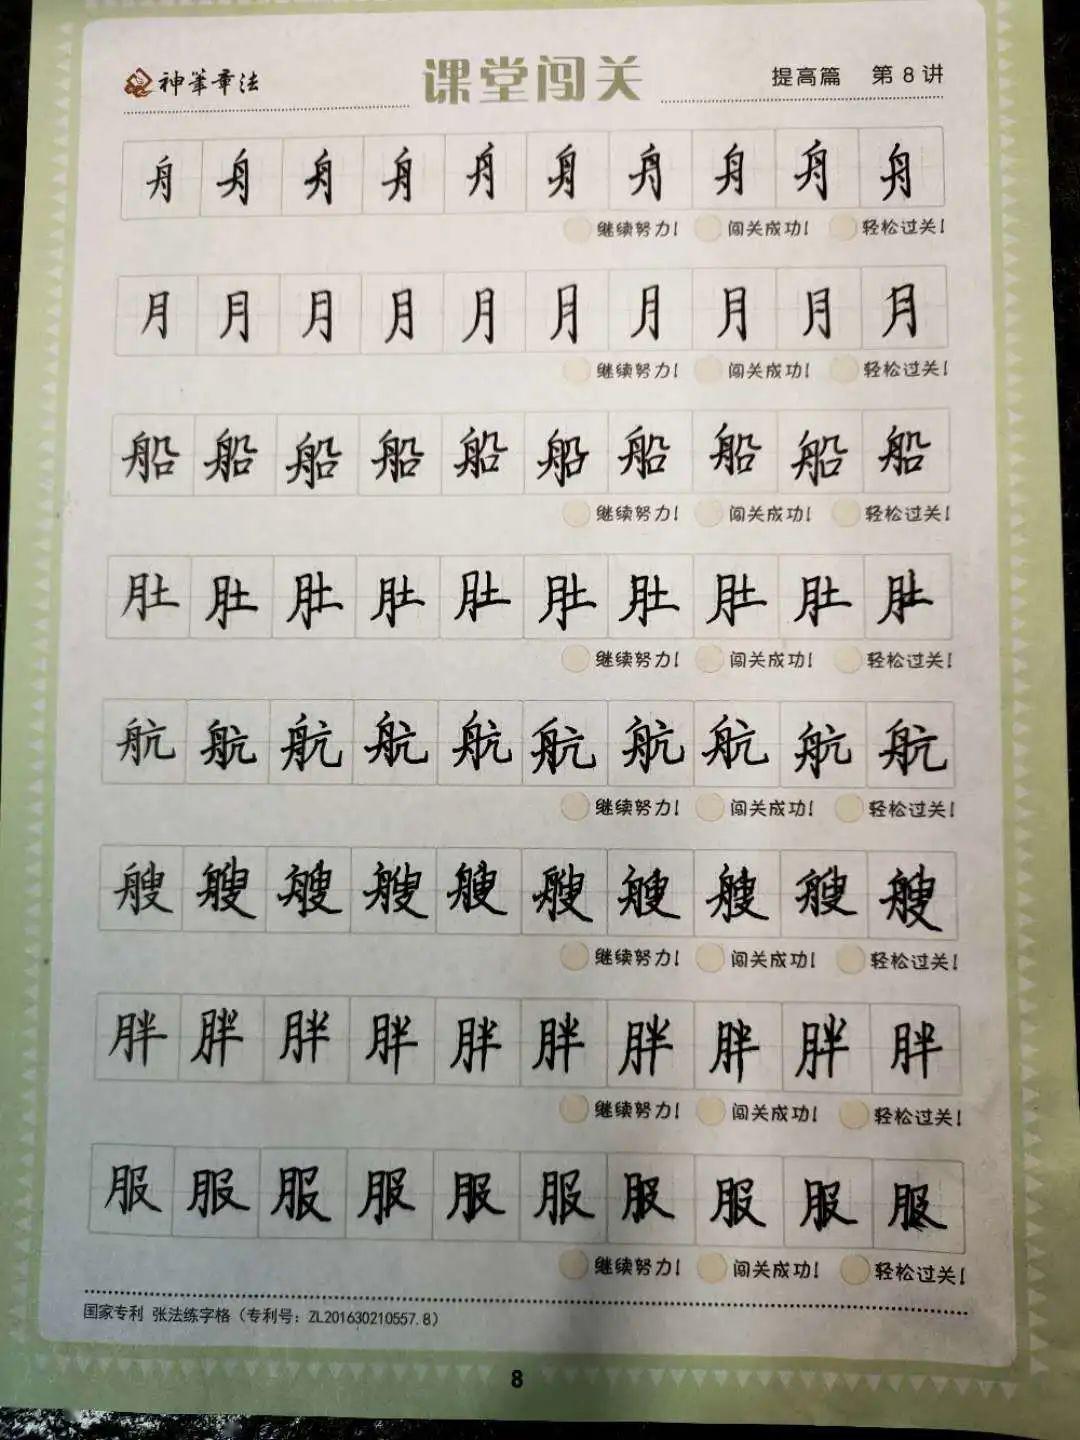 神笔章法 课堂闯关 提高篇 第8讲
舟 舟 舟 舟 舟 舟 舟 舟 舟 舟
继续努力! 闯关成功! 轻松过关!
月 月 月 月 月 月 月 月 月 月
继续努力! 闯关成功! 轻松过关!
船 船 船 船 船 船 船 船 船 船
继续努力! 闯关成功! 轻松过关!
肚 肚 肚 肚 肚 肚 肚 肚 肚 肚
继续努力! 闯关成功! 轻松过关!
航 航 航 航 航 航 航 航 航 航
继续努力! 闯关成功! 轻松过关!
艘 艘 艘 艘 艘 艘 艘 艘 艘 艘
继续努力! 闯关成功! 轻松过关!
胖 胖 胖 胖 胖 胖 胖 胖 胖 胖
继续努力! 闯关成功! 轻松过关!
服 服 服 服 服 服 服 服 服 服
继续努力! 闯关成功! 轻松过关!
国家专利 张法练字格（专利号：ZL201630210557.8）
8